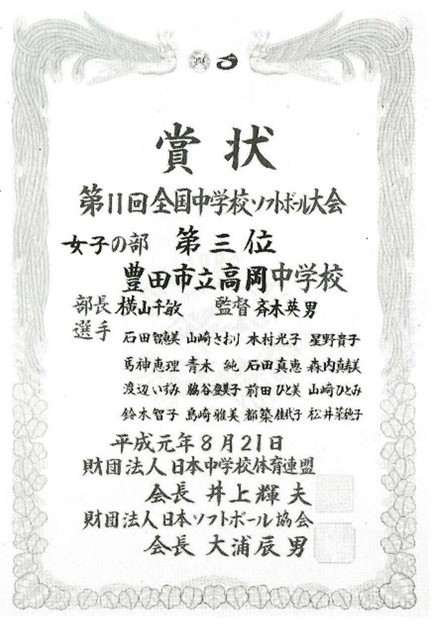 賞状
第11回全国中学校ソフトボール大会
女子の部 第三位
豊田市立高岡中学校
部長 横山千敏 監督 斉木英男
選手
石田智恵美 山崎さおり 木村光子 星野貴子
馬神恵理 青木純 石田真恵 森内真寿美
渡辺いずみ 脇谷登美子 前田ひと美 山崎ひとみ
鈴木智子 島崎雅美 都築佳代子 松井茉穂子
平成元年8月21日
財団法人日本中学校体育連盟
会長 井上輝夫
財団法人日本ソフトボール協会
会長 大浦辰男